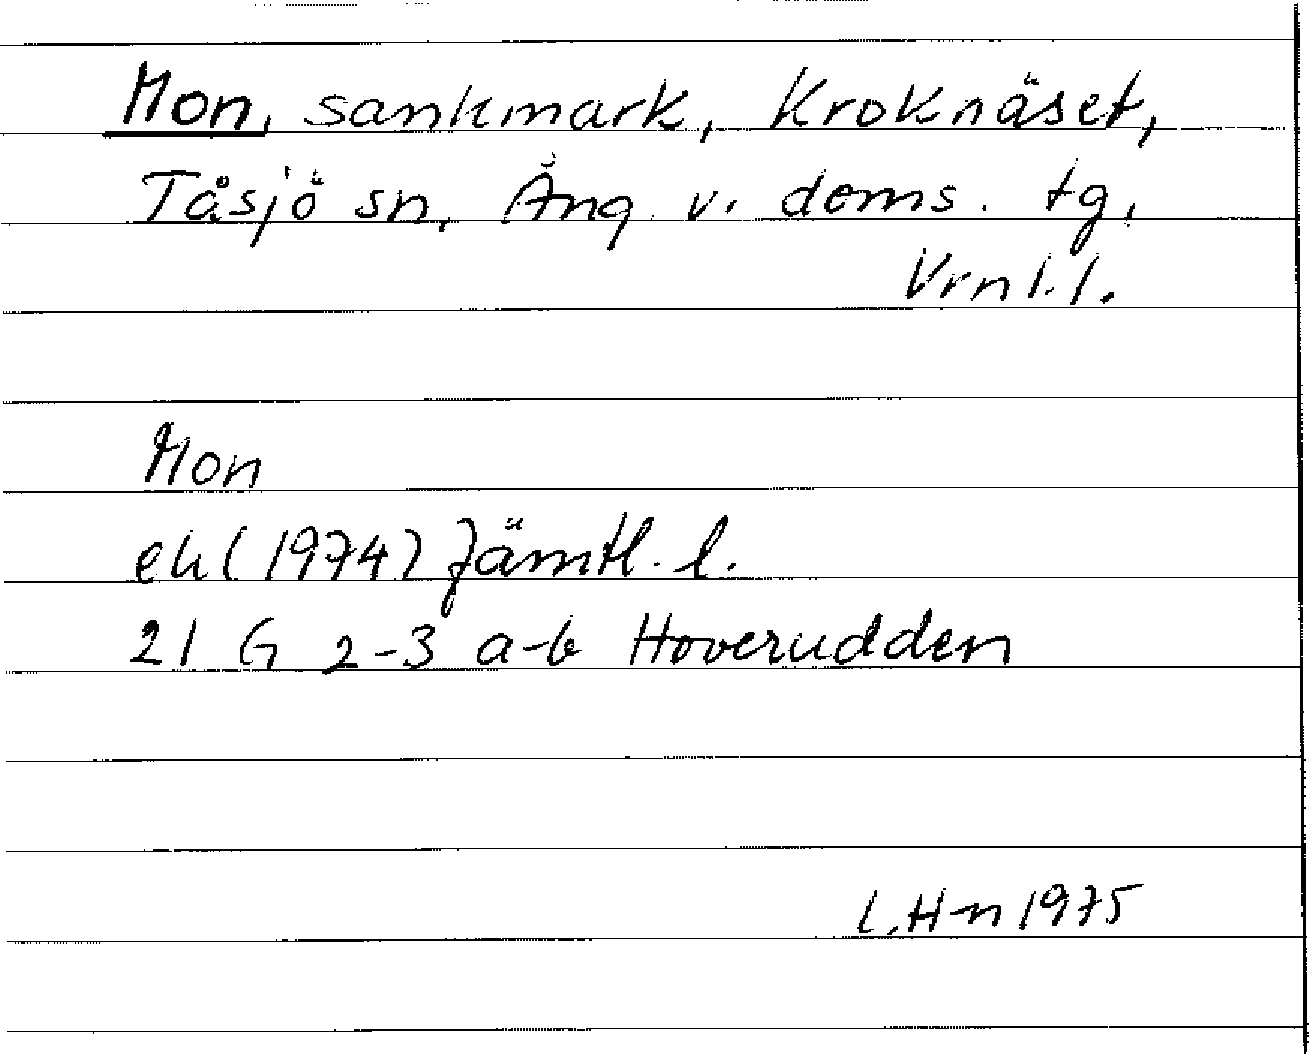 Mon, sankmark, Kroknäset,
Tåsjö sn, Ång. v. doms. tg,
Vrnl. l.
Mon
ek (1974) Jämtl. l.
21 G 2-3 a-b Hoverudden
L. H-n 1975